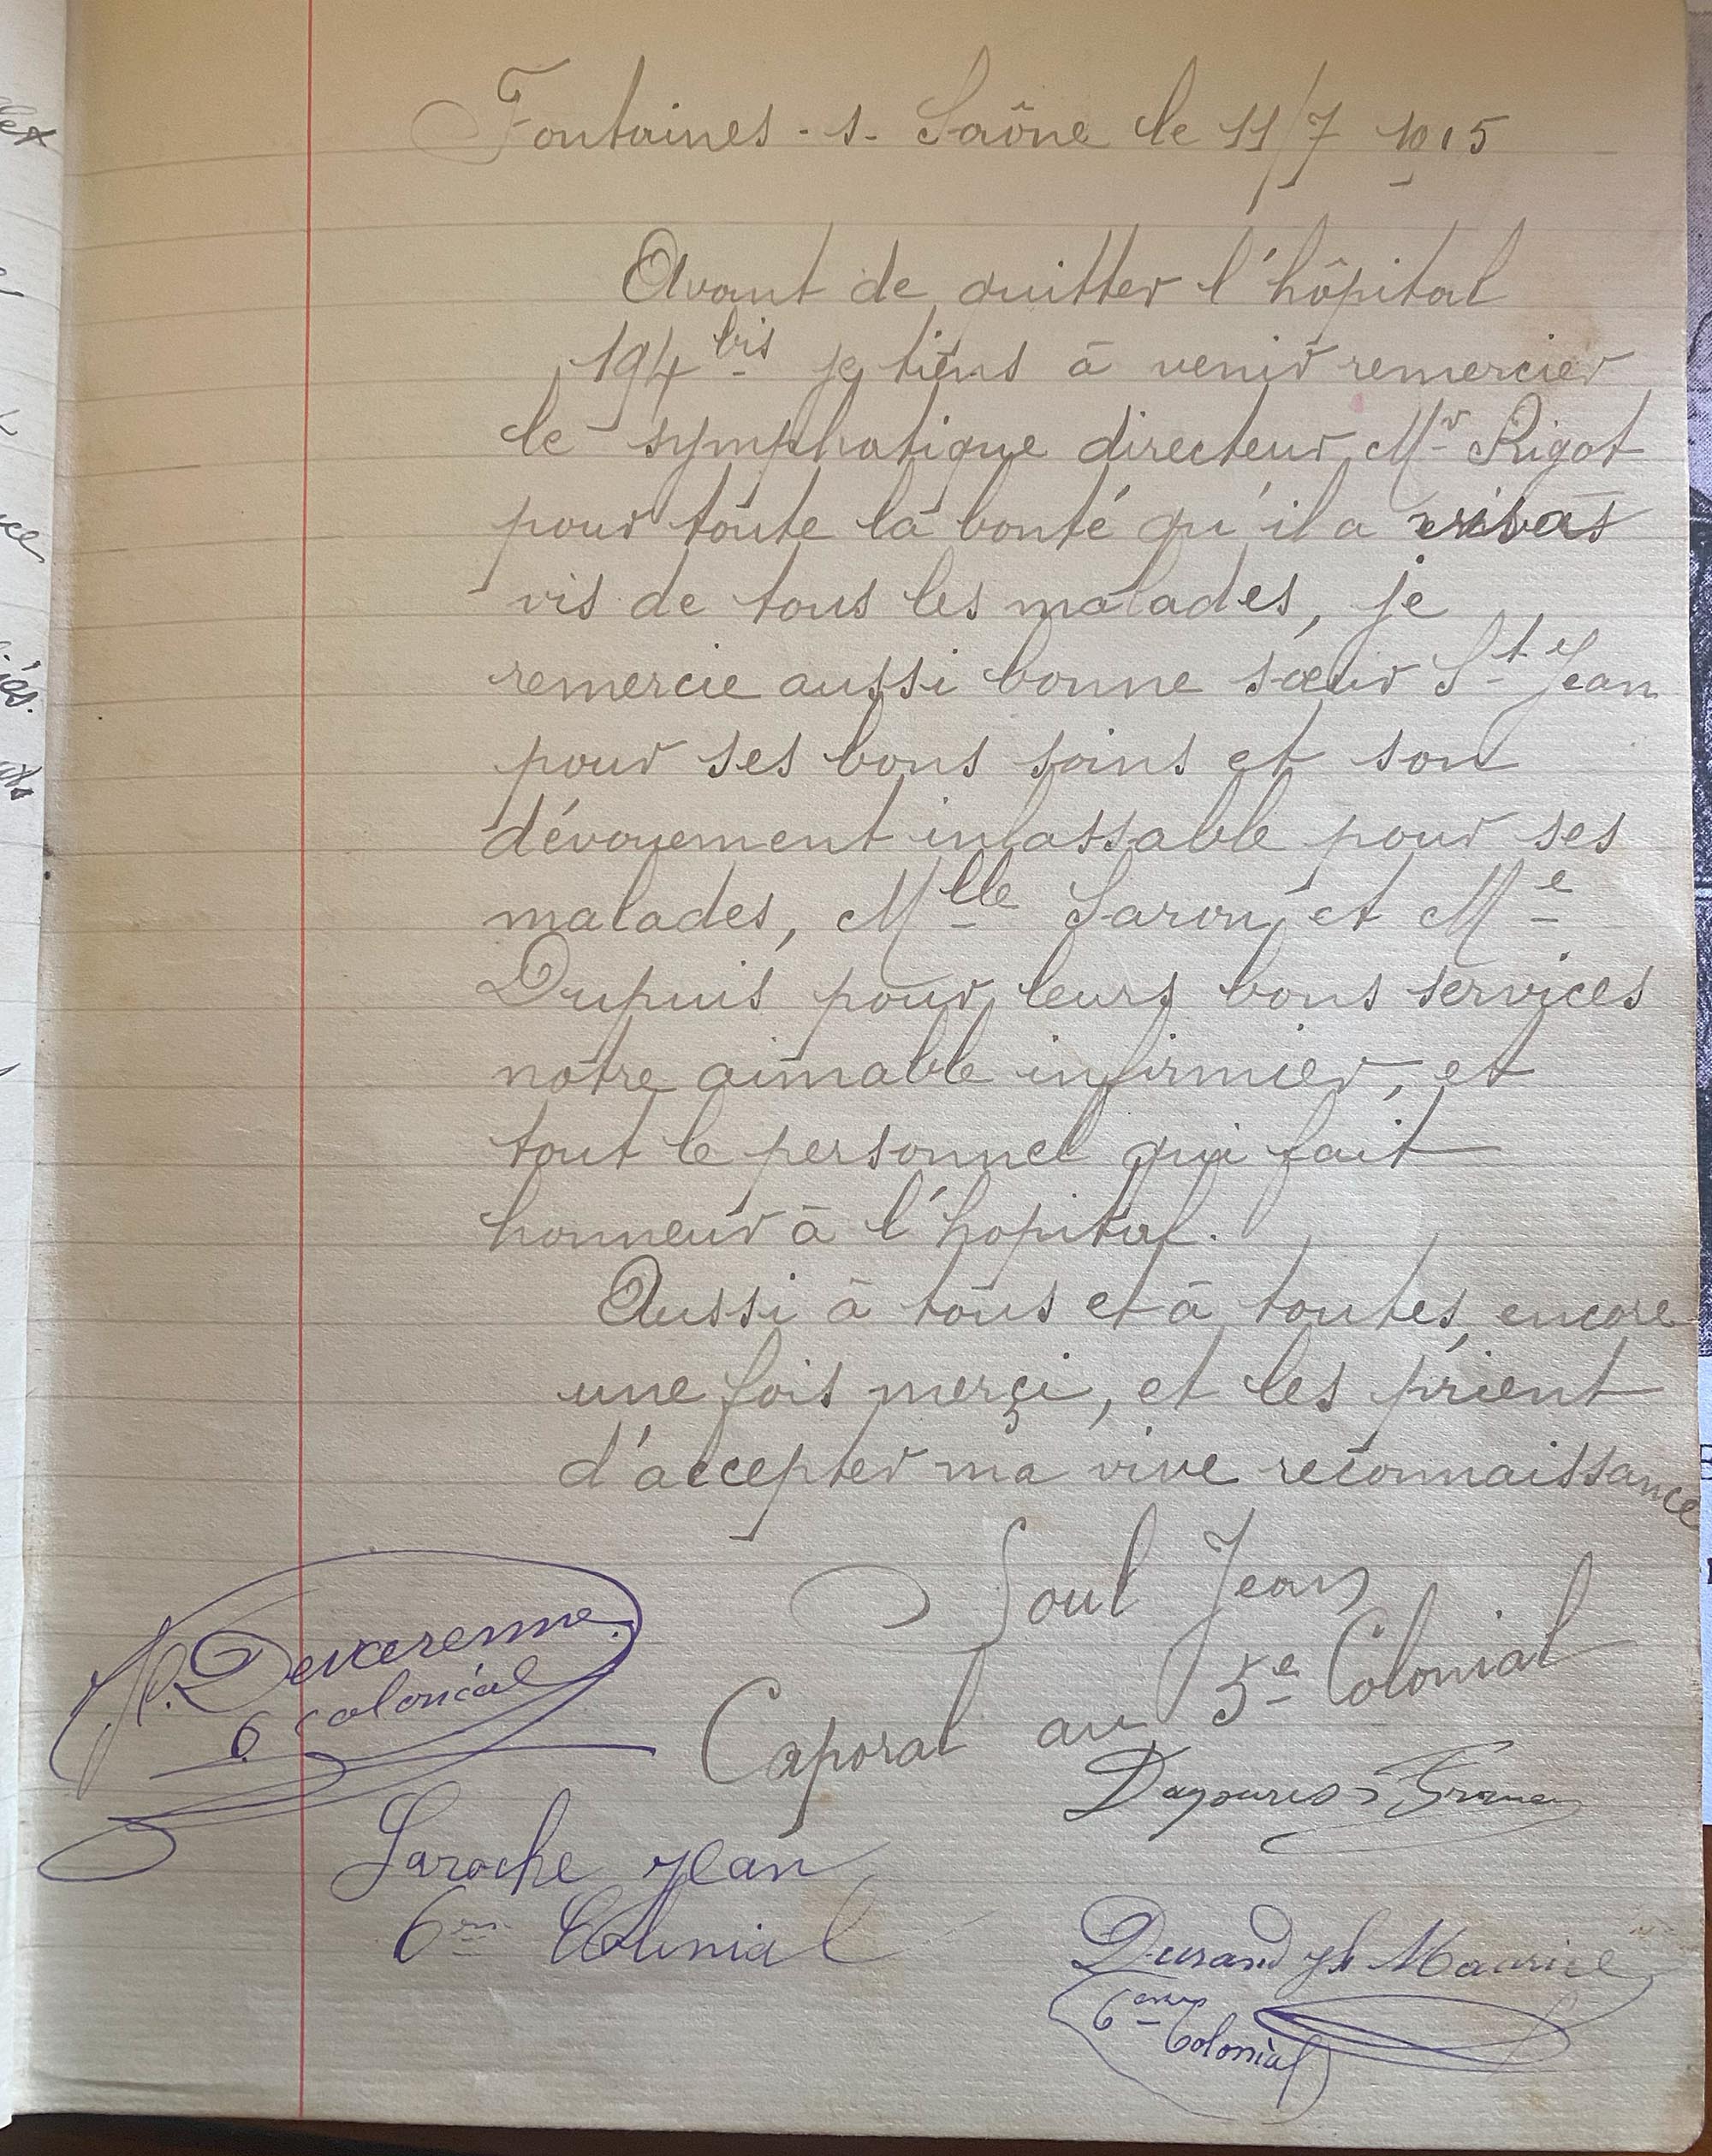 Fontaines - s - Saône le 11/7 1915
Avant de quitter l'hôpital
194 bis je tiens à venir remercier
le symphatique directeur Mr Rigot
pour toute la bonté qu'il a vis à
vis de tous les malades, je
remercie aussi bonne sœur St Jean
pour ses bons soins et son
dévouement inlassable pour ses
malades, Mlle Saron, et Me
Dupuis pour leurs bons services
notre aimable infirmier, et
tout le personnel qui fait
honneur à l'hopital.
Aussi à tous et à toutes encore
une fois merçi, et les prient
d'accepter ma vive reconnaissance
Soul Jean
Caporal au 5e Colonial
6 colonial
Laroche Jean
6me Colonial
Durand Jh Maurice
6eme Colonial